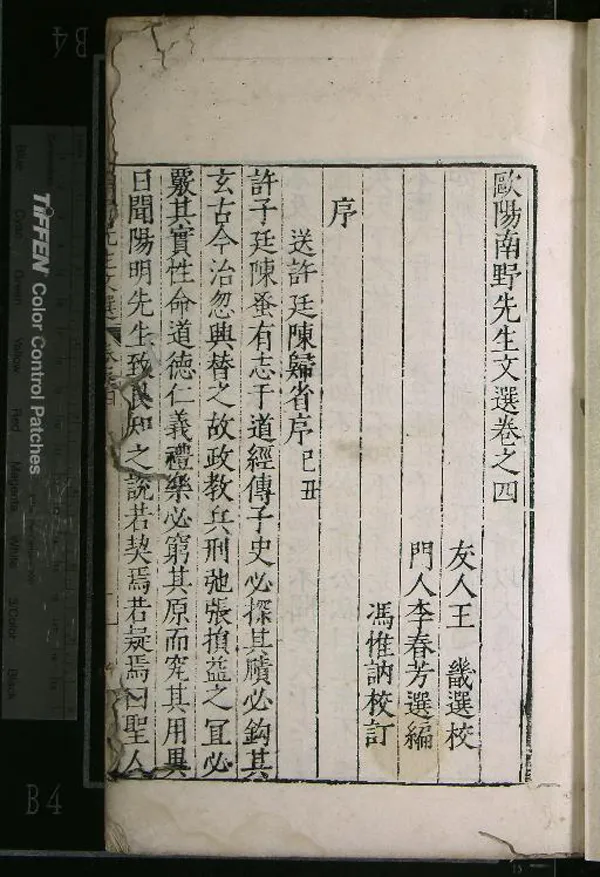 歐陽南野先生文選卷之四
友人王 畿選校
門人李春芳選編
馮惟訥校訂
序
送許廷陳歸省序 己丑
許子廷陳蚤有志于道經傳子史必探其賾必鈎其
玄古今治忽興替之故政教兵刑弛張損益之冝必
覈其實性命道德仁義禮樂必窮其原而究其用異
日聞陽明先生致良知之說若契焉若疑焉曰聖人
先生文選
TIFFEN Color Control Patches
Blue
Cyan
Green
Yellow
Red
Magenta
White
3/Color
Black
B4
B4